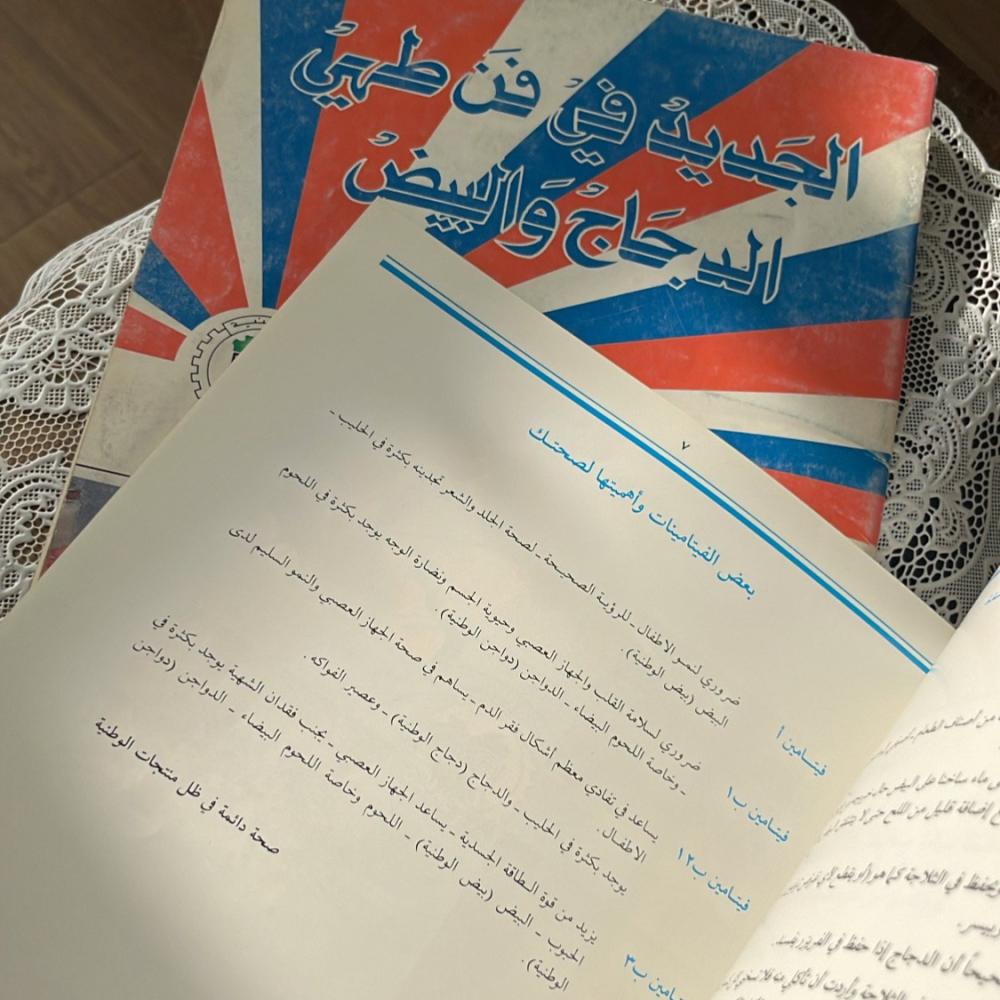 الجَديدُ فيْ فنَ طهيْ
الدجَاجْ وَالبيضْ
٧
بعض الفيتامينات وأهميتها لصحتك
فيتامين أ
ضروري لنمو الاطفال ـ للرؤية الصحيحة ـ لصحة الجلد والشعر تجدينه بكثرة في الحليب ـ
البيض (بيض الوطنية).
فيتامين ب١
ضروري لسلامة القلب والجهاز العصبي وحيوية الجسم ونضارة الوجه يوجد بكثرة في اللحوم
ـ وخاصة اللحوم البيضاء ـ الدواجن (دواجن الوطنية).
فيتامين ب١٢
يساعد في تفادي معظم اشكال فقر الدم ـ يساهم في صحة الجهاز العصبي والنمو السليم لدى
الاطفال.
يوجد بكثرة في الحليب ـ والدجاج (دجاج الوطنية) ـ وعصير الفواكه.
فيتامين ب٣
يزيد من قوة الطاقة الجسدية ـ يساعد الجهاز العصبي ـ يجنب فقدان الشهية يوجد بكثرة في
الحبوب ـ البيض (بيض الوطنية) ـ اللحوم وخاصة اللحوم البيضاء ـ الدواجن (دواجن
الوطنية).
صحة دائمة في ظل منتجات الوطنية
إضافة قليل من الملح حتى لا
يحفظ في الثلاجة كما هو (أو
أن الدجاج إذا حفظ في الفريزر يفسد.
الثلاجة وأردت أن تأكلي منه فلا